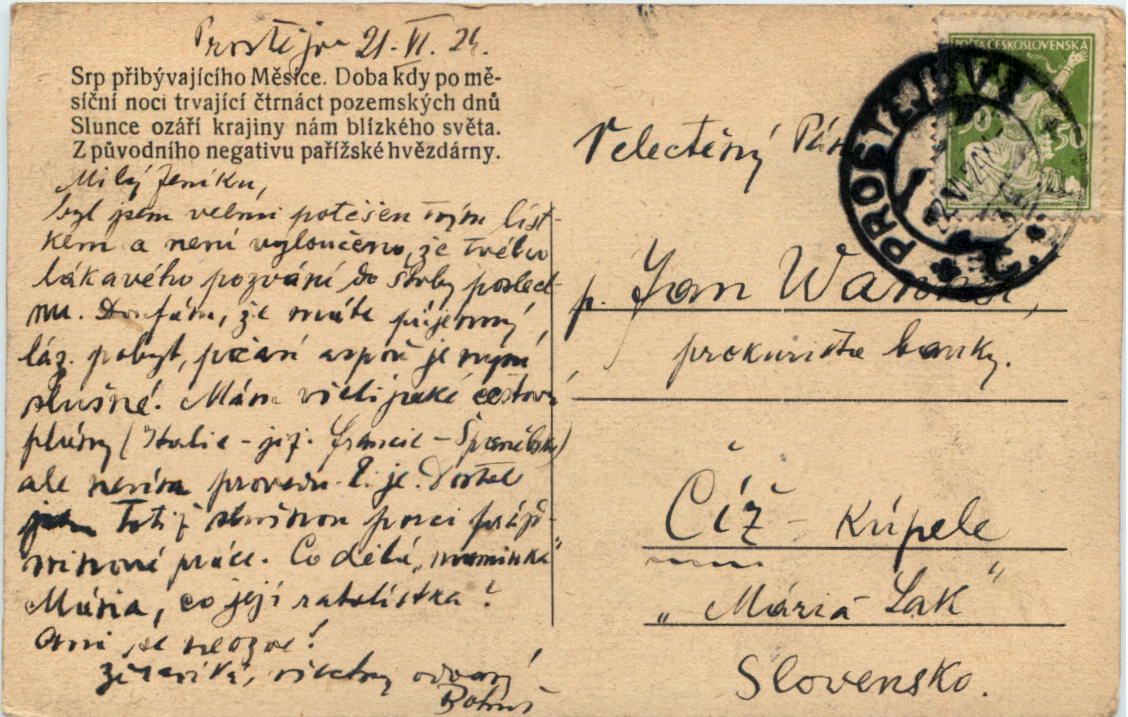 Prostějov 21. VI. 24.
Srp přibývajícího Měsíce. Doba kdy po mě-
síční noci trvající čtrnáct pozemských dnů
Slunce ozáří krajiny nám blízkého světa.
Z původního negativu pařížské hvězdárny.
Milý Jeníku,
byl jsem velmi potěšen tvým líst-
kem a není vyloučeno, že tvého
lákavého pozvání do Štrby
Doufám, že máte příjemný
láz. pobyt, počasí aspoň je nyní
slušné. Mám všelijaké cestovní
plány (Italie - již. Francie - Španělsko)
ale nevím provedu-li je. Dostal
jsem totiž slušnou porci prázd-
ninové práce. Co dělá „maminka“
Mária, co její ratolístka?
Ani se neozve!
všechny
Velectěný Pán
p. Jan
prokurista banky.
Číž - Kúpele
„Mária Lak“
Slovensko.
POŠTA ČESKOSLOVENSKÁ
50 50
PROSTĚJOV 1
22.VI.24